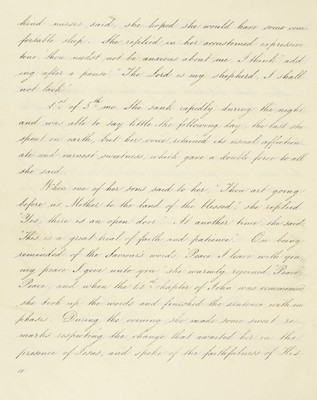 kind nurses said, she hoped she would have some com-
fortable sleep. She replied in her accustomed expressive
tone "thou needst not be anxious about me I think" add
ing after a pause "The Lord is my shepherd, I shall
not lack."
1st of 5th mo She sank rapidly during the night
and was able to say little the following day the last she
spent on earth, but her voice retained its usual affection
ate and earnest sweetness which gave a double force to all
she said.
When one of her sons said to her "Thou art going
before us Mother to the land of the blessed," she replied
"Yes, there is an open door." At another time she said
"This is a great trial of faith and patience." On being
reminded of the Saviours words, "Peace I leave with you
my peace I give unto you" she warmly rejoined "Peace
Peace, and when the 15th chapter of John was commenced
she took up the words and finished the sentence with em
phasis. During the evening she made some sweet re-
marks respecting the change that awaited her in the
presence of Jesus, and spoke of the faithfulness of His